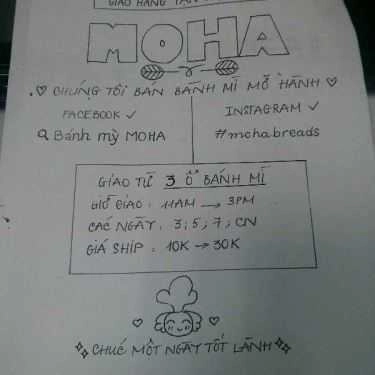 GIAO HÀNG TẬN
MOHA
CHÚNG TÔI BÁN BÁNH MÌ MỠ HÀNH
FACEBOOK ✓
Bánh mỳ MOHA
INSTAGRAM ✓
#mohabreads
GIAO TỪ 3 Ổ BÁNH MÌ
GIỜ GIAO : 11AM → 3PM
CÁC NGÀY : 3; 5; 7; CN
GIÁ SHIP : 10K → 30K
CHÚC MỘT NGÀY TỐT LÀNH